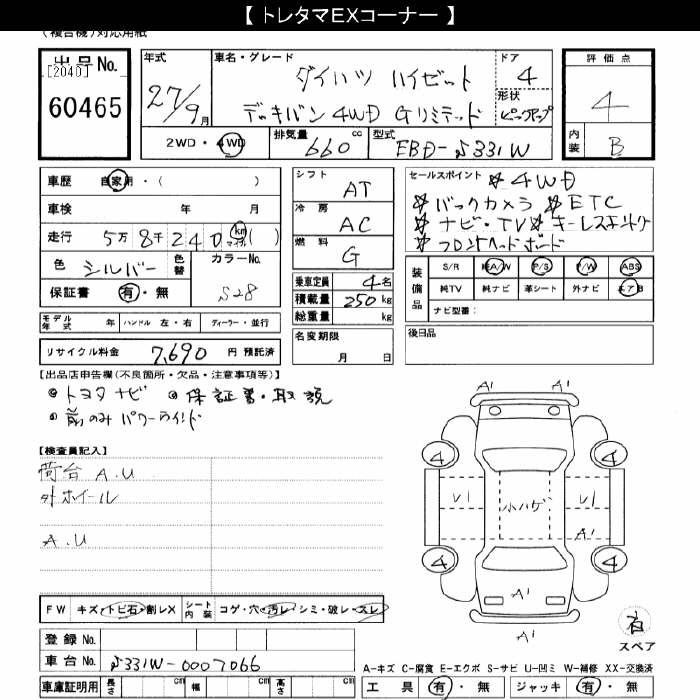 【 トレタマEXコーナー 】
(複合機)対応用紙
出品No.
[2040]
60465
年式
27/9月
車名・グレード
ダイハツ ハイゼット
デッキバン 4WD Gリミテッド
ドア
4
形状
ピックアップ
評価点
4
内装
B
2WD・4WD
排気量
660 cc
型式
EBD-S331W
車歴 自家用・( )
車検 年 月
走行 5万8千240 km マイル ( )
色 シルバー 色替
カラーNo.
S28
保証書 有・無
モデル年式 年 ハンドル 左・右 ディーラー・並行
リサイクル料金 7,690 円 預託済
シフト
AT
冷房
AC
燃料
G
乗車定員 4名
積載量 250 kg
総重量 kg
名変期限
月 日
セールスポイント ☆4WD
☆バックカメラ ☆ETC
☆ナビ・TV ☆キーレスエントリー
☆フロントヘッドボード
装備品
S/R 純A/W P/S P/W ABS
純TV 純ナビ 革シート 外ナビ エアB
ナビ型番:
後日品
【出品店申告欄(不良箇所・欠品・注意事項等)】
◎トヨタナビ ◎保証書・取説
◎前のみパワーウインド
【検査員記入】
荷台 A.U
外ホイール
A.U
A1 A1
4 4
U1 小ハゲ U1
A1
4 4
A1
U1 A1
FW キズ・トビ石・割レX シート内装 コゲ・穴・汚レ・シミ・破レ・スレ
有
スペア
登録No.
車台No. S331W-0007066
A-キズ C-腐食 E-エクボ S-サビ U-凹ミ W-補修 XX-交換済
車庫証明用 長さ cm 幅 cm 高さ cm
工具 有・無 ジャッキ 有・無